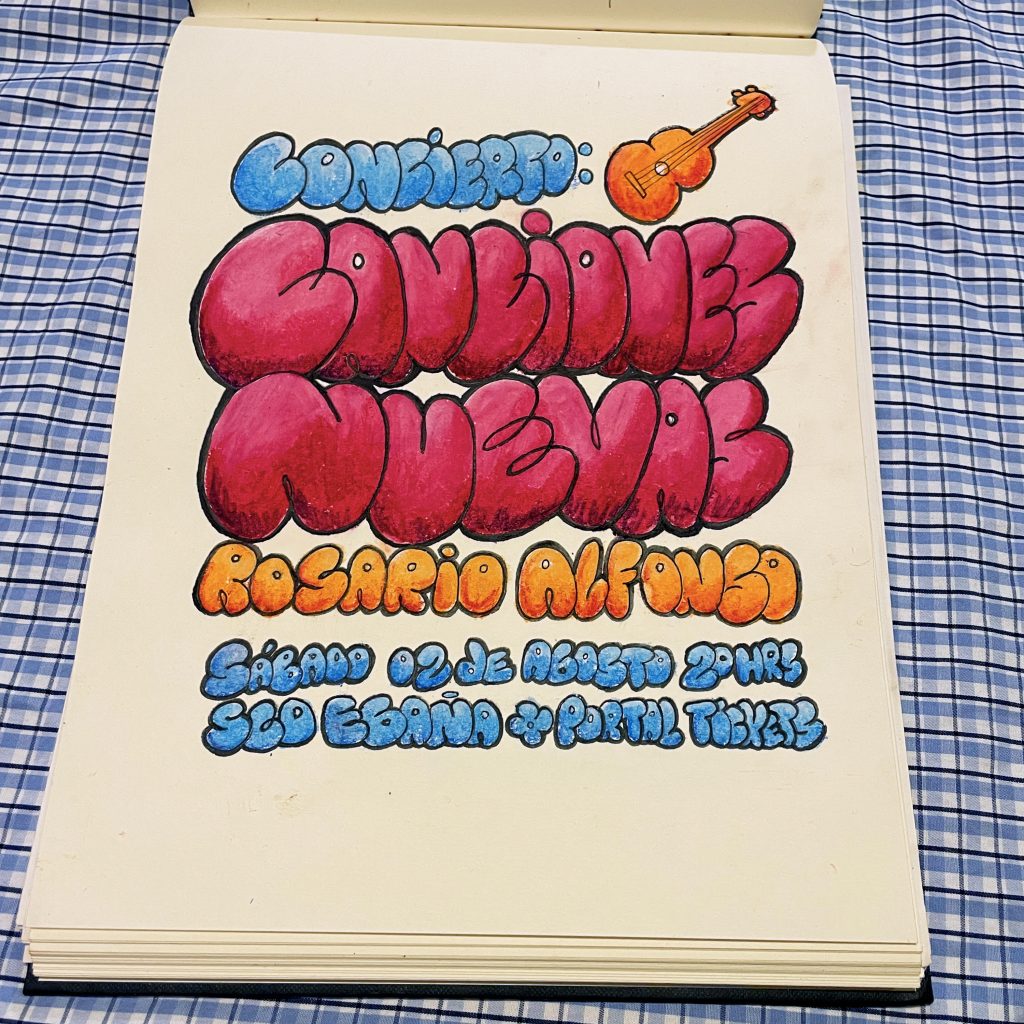 CONCiERTO:
CANCiONES
NUEVAS
ROSARiO ALFONSO
SÁBADO 02 de AGOSTO 20 HRS
SCD EGAÑA * PORTAL TICKETS